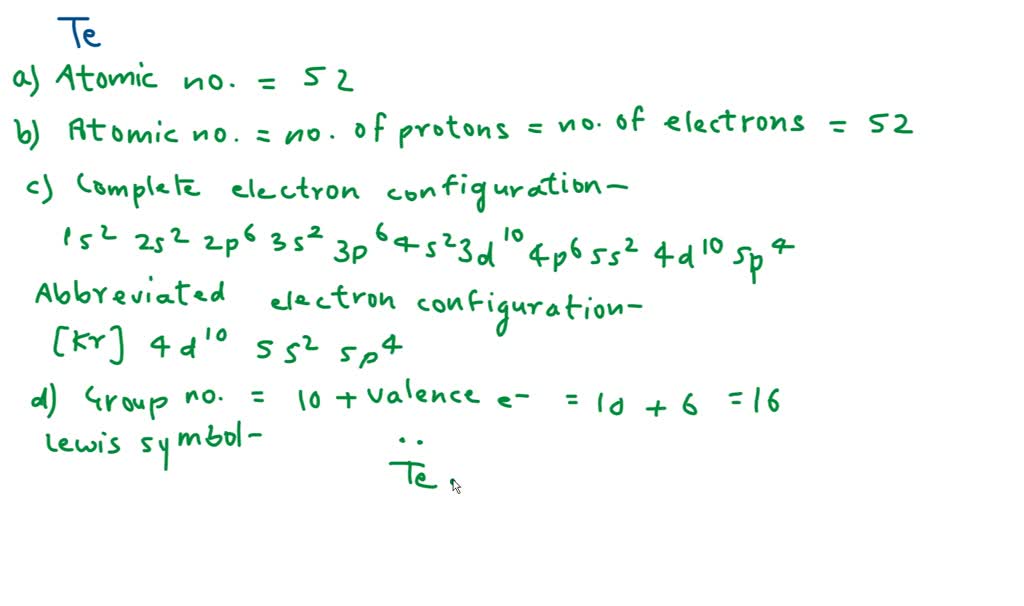 Te
a) Atomic no. = 52
b) Atomic no. = no. of protons = no. of electrons = 52
c) Complete electron configuration-
1s² 2s² 2p⁶ 3s² 3p⁶ 4s² 3d¹⁰ 4p⁶ 5s² 4d¹⁰ 5p⁴
Abbreviated electron configuration-
[Kr] 4d¹⁰ 5s² 5p⁴
d) Group no. = 10 + valence e⁻ = 10 + 6 = 16
Lewis symbol-
..
Te .